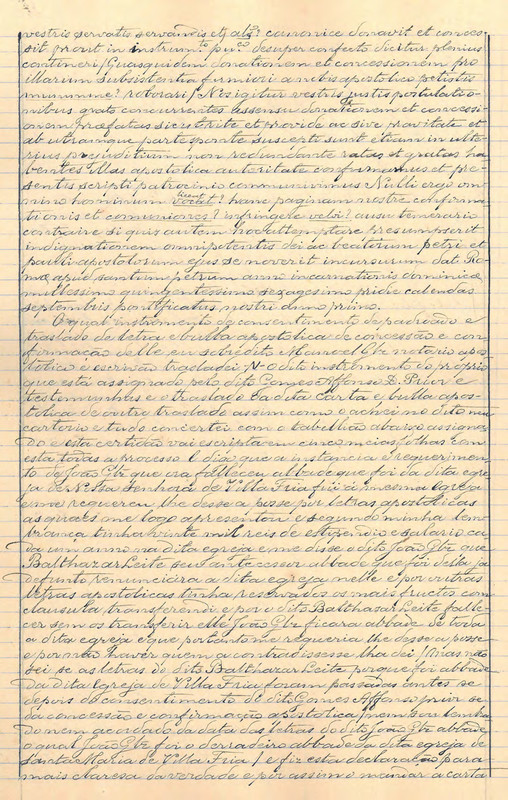 vestris servatis servandis et alz.? canonice donavit et conces
sit prout in instrum.to pu.co desuper confecto dicitur plenius
contineri / Quasquidem donationem et concessionem pro
illarum subsistentia fumiori a nobis apostolico petistis
munimine? roborari / Nos igitur vestris justis postulatio-
nibus grato concurrentes assensu donationem et concessi-
onem prefatas sicut rite et provide ac sive pravitate et
ab utramque parte sponte suscepte sunt etiam in ulte-
rius prejuditium non redundante ratas et gratas ha
bentes illas apostolica autoritate confirmamus et pre-
sentis scripti patrocinio communimus Nulli ergo om
nino hominum liceat? hanc paginam nostre confirma
tionis et comuniones? infringere velbi? ausu temerario
contraire si quis autem hoc attemptare presumpserit
indignationem omnipotentis dei ac beatorum petri et
pauli apostolorum ejus se noverit incursurum dat Ro-
mæ apud santum petrum anno incarnationis dominicæ
millessimo quingentessimo sexagesimo pride calendas
septembris pontificatus nostri anno primo.
O qual instrumento de consentimento de padroado e
traslado de letra e bulla apostolica de concessão e con
firmação delle eu sobredito Manoel Glz notario apos
tolico e escrivão trasladei N o dito instromento do proprio
que está assignado pelo dito Gomes Affonso D. Prior e
testimunhas e o traslado da dita carta e bulla apos-
tolica de outro traslado assim como o achei no dito meu
cartorio e tudo concertei com o tabellião abaixo assigna
do e esta certidão vai escripta em cinco meias folhas com
esta todas a processo E dia que a instancia e requerimen
to de João Glz que ora falleceu abbade que foi da dita egre
ja de N.ssa Senhora de Villa Fria fui á mesma Egreja
e me requereu lhe desse a posse por letras apostolicas
as quaes me logo apresentou e segundo minha lem
brança tinha vinte mil reis de estipendio e salario ca
da um anno na dita egreja e me disse o dito João Glz que
Balthazar Leite seu antecessor abbade que foi della ja
defunto renunciára a dita egreja nelle e por outras
letras apostolicas tinha reservados os mais fructos com
clausula transferendi e por o dito Balthasar Leite falle-
cer sem os transferir elle João Glz ficara abbade de toda
a dita egreja e que portanto me requeria lhe desse a posse
e por não haver quem a contradissesse lha dei / mas não
sei se as letras do dito Balthazar Leite porque foi abbade
da dita Egreja de Villa Fria foram passadas antes se
depois do consentimento do dito Gomes Affonso prior se
da concessão e confirmação apostolica / nem sou lembra
do nem acordado da data das letras do dito João Glz abbade
o qual João Glz foi o derradeiro abbade da dita egreja de
Santa Maria de Villa Fria / e fiz esta declaração para
mais claresa da verdade e por assim o mandar a carta